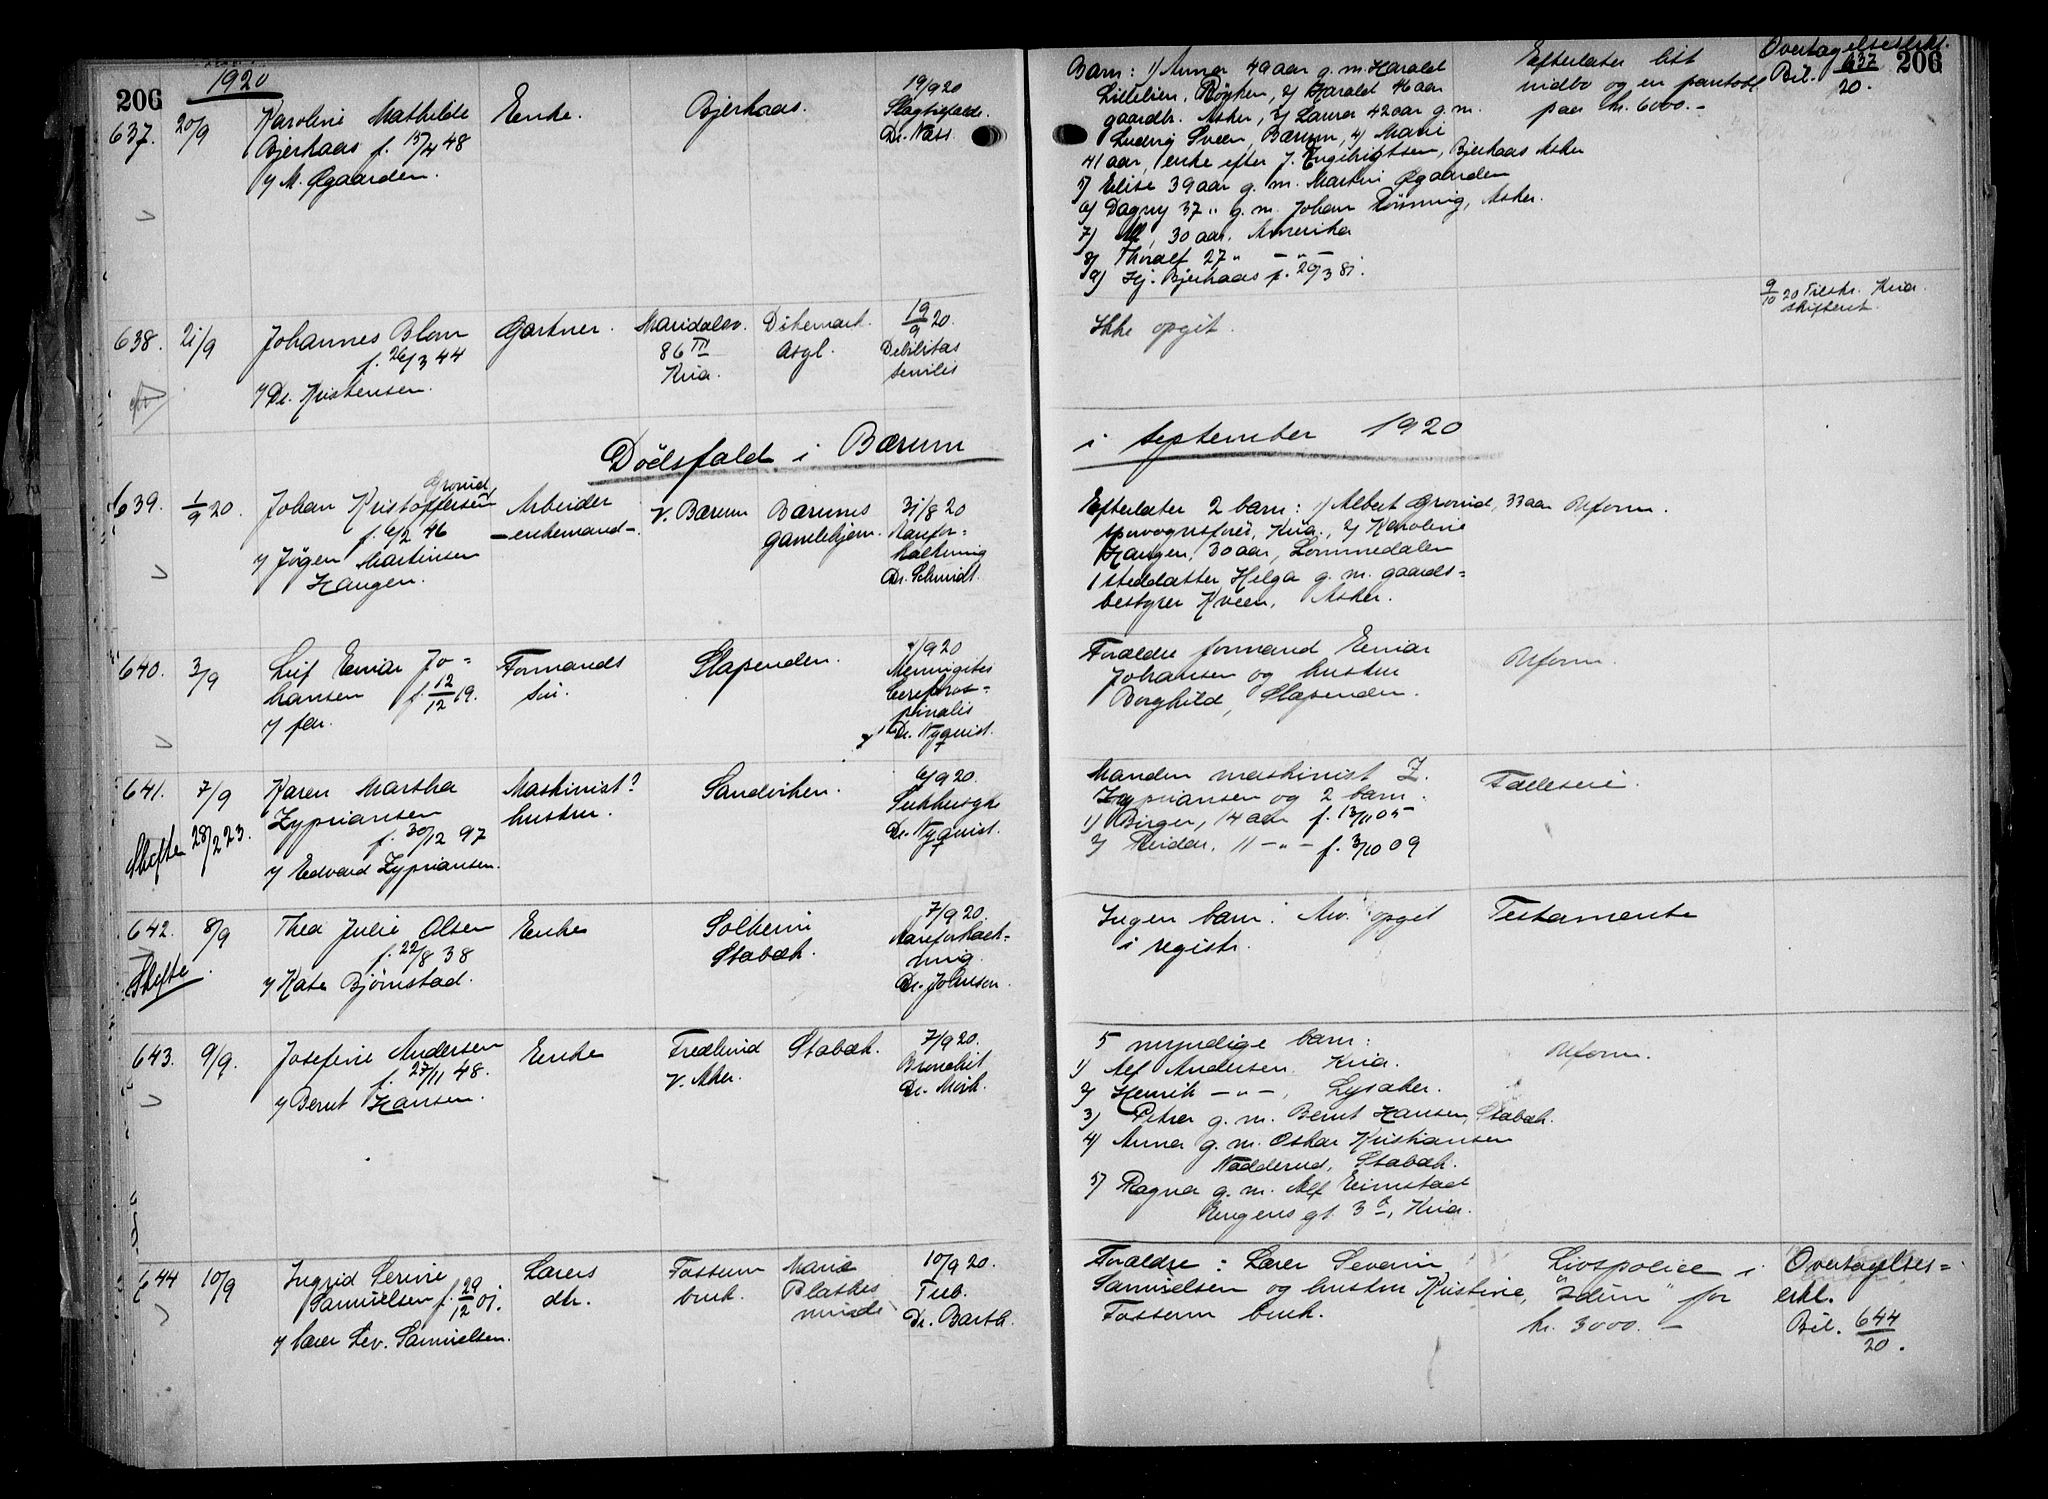 206
1920
637. 20/9 Karoline Mathilde Enke. Bjerkaas. 19/9 20
Bjerkaas f. 15/4 48 Slagtilfælde.
v/ M. Øgaarden. Dr. Næss.
Barn: 1) Anna 49 aar g. m. Harald
Lillelien, Røyken, 2) Harald 46 aar
gaardbr. Asker, 3) Laura 42 aar g. m.
Ludvig Sveen, Bærum, 4) Marie
41 aar, enke efter J. Engebrigtsen, Bjerkaas Asker
5) Elise 39 aar g. m. Martin Øgaarden
6) Dagny 37 " g. m. Johan Rønning, Asker.
7) Alf, 30 aar. Amerika
8) Thoralf 27 " - " -
9) Hj. Bjerkaas f. 20/3 81.
Efterlater litt
indbo og en pantobl.
paa kr. 6000.-
Overtagelseserkl.
Bil. 637/20.
206
638. 21/9 Johannes Blom Gartner. Maridalsv. Dikemark 19/9 20.
f. 26/3 44 86 III asyl. Debilitas
v/ Dr. Kristensen. Kria. senilis
Ikke opgit.
9/10 20 Tilskr. Kria.
skifteret.
Dödsfald i Bærum
i september 1920
639. 1/9 20. Johan Kristoffersen Grorud, Arbeider V. Bærum Bærums 31/8 20
f. 6/2 46 - enkemand - gamlehjem. Aarefor-
v/ Jørgen Martinsen kalkning
Haugen. Dr. Schmidt.
Efterlater 2 barn: 1) Albert Grorud, 33 aar Uform.
sporvognsfører, Kria., 2) Karoline
Haugen, 30 aar, Lommedalen
1 steddatter Helga g. m. gaards-
bestyrer Kveen, Asker.
640. 3/9 Leif Einar Jo- Formands Slependen. 1/9 20
hansen f. 12/12 19. søn. Meningites
v/ far. Cerebros-
pinalis
Dr. Nyquist.
Forældre formand Einar
Johansen og hustru
Borghild, Slependen.
Uform.
641. 7/9 Karen Martha Maskinist? Sandviken. 6/9 20.
Zypriansen hustru. Sukkersyke
f. 30/12 97 Dr. Nyquist.
Skifte 28/2 23. v/ Edvard Zypriansen.
Manden maskinist Z.
Zypriansen og 2 barn.
1) Birger, 14 aar f. 13/11 05
2) Reidar. 11 - " - f. 3/10 09
Fælleseie
642. 8/9 Thea Julie Olsen Enke Solheim 7/9 20
f. 22/8 38 Stabæk. Aareforkalk-
Skifte. v/ Kate Bjørnstad. ning.
Dr. Johnsen.
Ingen barn. Arv. opget
i registr.
Testamente
643. 9/9. Josefine Andersen Enke Fredlund Stabæk. 7/9 20.
f. 27/11 48. V. Aker. Bronchit
v/ Bernt Hansen. Dr. Mørk.
5 myndige barn:
1) Alf Andersen Kria.
2) Henrik - " -, Lysaker.
3) Petra g. m. Bernt Hansen, Stabæk.
4) Anna g. m. Oskar Kristiansen
Nadderud, Stabæk.
5) Ragna g. m. Alf Einstad
gt. 3, Kria.
Uform.
644 10/9 Ingrid Serine Lærers Fossum Marie 10/9 20.
Samuelsen f. 29/12 01. dtr. bruk. Plathes Tub.
v/ lærer Sev. Samuelsen. minde Dr. Barth.
Forældre: Lærer Severin
Samuelsen og hustru Kristine,
Fossum bruk.
Livspolice i
"Idun" for
kr. 3000.-
Overtagelses-
erkl.
Bil. 644/20.